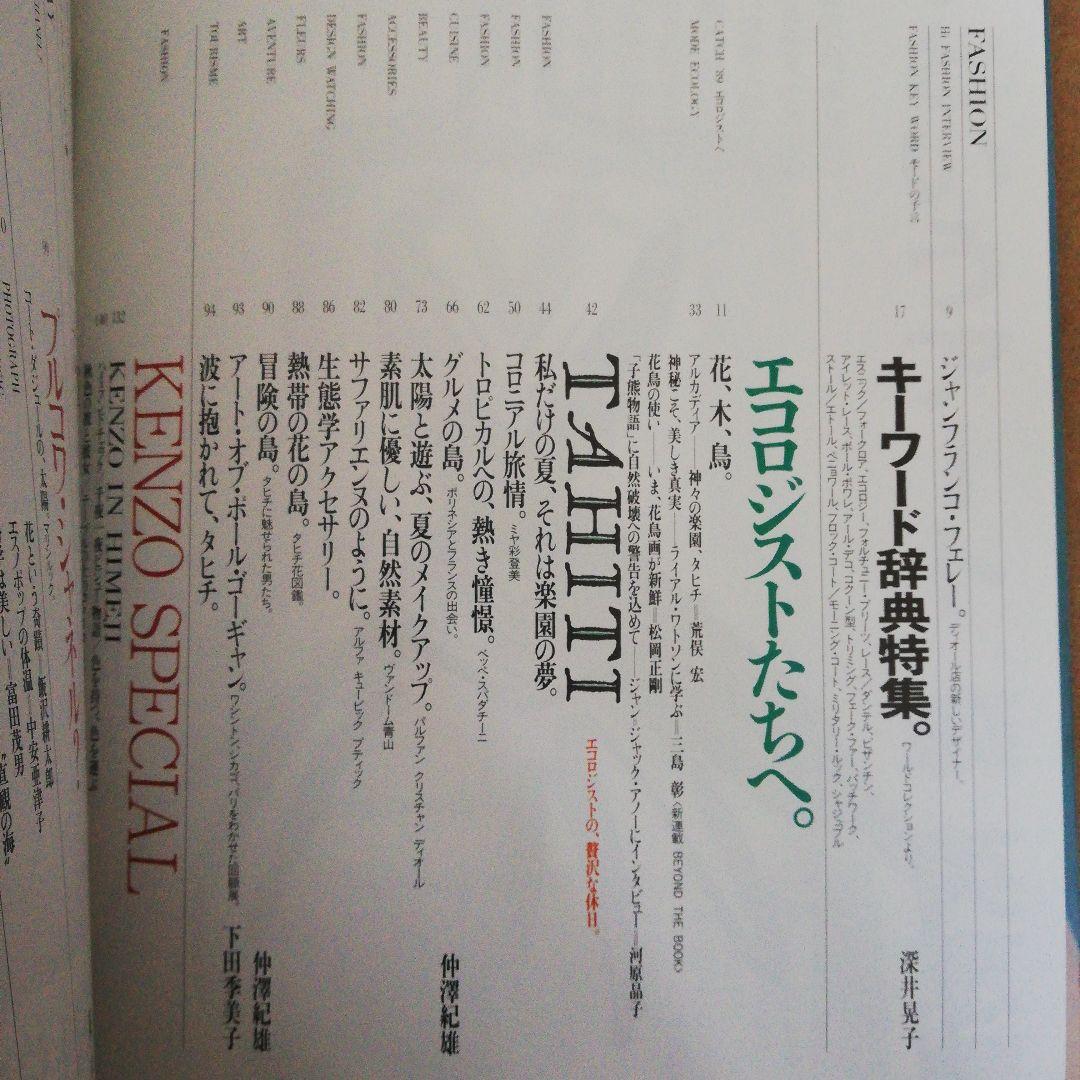 FASHION
Hi FASHION INTERVIEW
9 ジャンフランコ・フェレー。ディオール店の新しいデザイナー。
FASHION KEY WORD モードの予言
17 キーワード辞典特集。ワールド・コレクションより。 深井晃子
エスニック/フォークロア、エコロジー、フォルチュニー・プリーツ、レース/ダンテル、ビザンチン、
アイレット・レース、ポール・ポワレ、アール・デコ、コクーン型、トリミング、フェーク・ファー、パッチワーク、
ストール/エトール、ペニョワール、フロック・コート/モーニング・コート、ミリタリー・ルック、シャジュブル
エコロジストたちへ。
CATCH '89 エコロジストへ
11 花、木、鳥。
MODE ECOLOGY
33 アルカディア――神々の楽園、タヒチ=荒俣 宏
神秘こそ、美しき真実――ライアル・ワトソンに学ぶ=三島 彰〈新連載 BEYOND THE BOOK〉
花鳥の使い――いま、花鳥画が新鮮=松岡正剛
「子熊物語」に自然破壊への警告を込めて――ジャン・ジャック・アノーにインタビュー=河原晶子
42 TAHITI エコロジストの、贅沢な休日。
FASHION
44 私だけの夏、それは楽園の夢。
FASHION
50 コロニアル旅情。ミヤ彩登美
FASHION
62 トロピカルへの、熱き憧憬。ペッペ・スパダチーニ
CUISINE
66 グルメの島。ポリネシアとフランスの出会い。 仲澤紀雄
BEAUTY
73 太陽と遊ぶ、夏のメイクアップ。パルファン クリスチャン ディオール
ACCESSORIES
80 素肌に優しい、自然素材。ヴァンドーム青山
FASHION
82 サファリエンヌのように。アルファ キュービック ブティック
DESIGN WATCHING
86 生態学アクセサリー。
FLEURS
88 熱帯の花の島。タヒチ花図鑑。
AVENTURE
90 冒険の島。タヒチに魅せられた男たち。 仲澤紀雄
ART
93 アート・オブ・ポール・ゴーギャン。ワシントン、シカゴ、パリをわかせた回顧展。 下田季美子
TOURISME
94 波に抱かれて、タヒチ。
FASHION
KENZO SPECIAL
132 KENZO IN HIMEJI
PHOTOGRAPH
花という奇蹟=飯沢耕太郎
ポップの体温=中安亜津子
富田茂男
“直観の海”